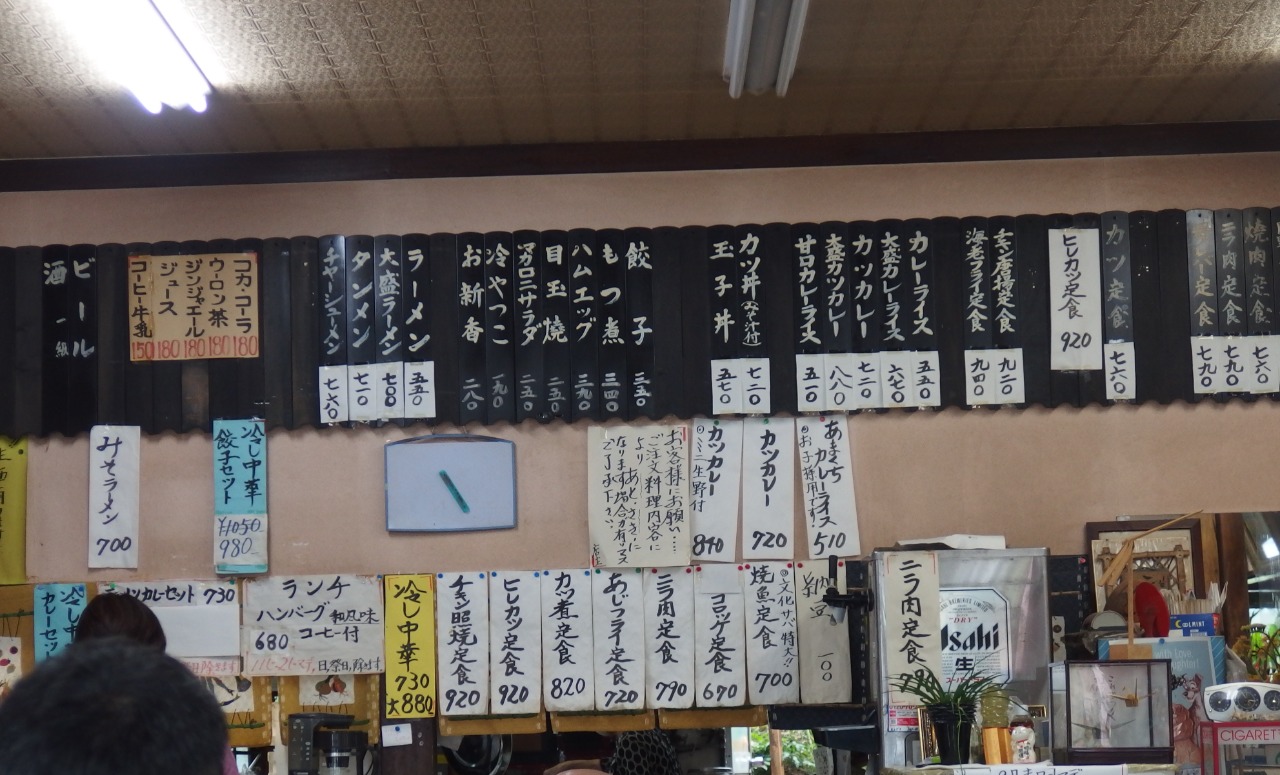 焼肉定食
七六〇
ラ肉定食
七九〇
七九〇
カツ定食
七六〇
ヒレカツ定食
920
チキン唐揚定食
九二〇
海老フライ定食
九四〇
カレーライス
五五〇
大盛カレーライス
六七〇
カツカレー
七二〇
大盛カツカレー
八八〇
甘口カレーライス
五一〇
カツ丼(みそ汁付)
七二〇
玉子丼
五七〇
餃子
三五〇
もつ煮
三四〇
ハムエッグ
三九〇
目玉焼
二五〇
マカロニサラダ
二五〇
冷やっこ
一九〇
お新香
二八〇
ラーメン
五五〇
大盛ラーメン
七〇〇
タンメン
七一〇
チャーシューメン
七六〇
コカ・コーラ
180
ウロン茶
180
ジンジャエール
180
ジュース
180
コーヒー牛乳
150
ビール
酒
一級
あまくち
カレーライス
お子様用です!
510
カツカレー
720
カツカレー
ミニ生野付
840
お客様にお願い……
ご注文料理内容に
より あとさきに
なります場合が有りマス
ご了承下さい。
冷し中華
餃子セット
¥1050
980
みそラーメン
700
ニラ肉定食
納豆
一〇〇
文化サバ、特大!!
焼魚定食
700
コロッケ定食
670
ニラ肉定食
790
あじフライ定食
720
カツ煮定食
820
ヒレカツ定食
920
チキン照焼定食
920
冷し中華
730
大880
ランチ
ハンバーグ 和風味
680 コーヒー付
日.祭日.除ます
カレーセット 730
冷し中
カレーセッ
Asahi
"DRY"
生
COOLMINT
with Love,
CIGARET